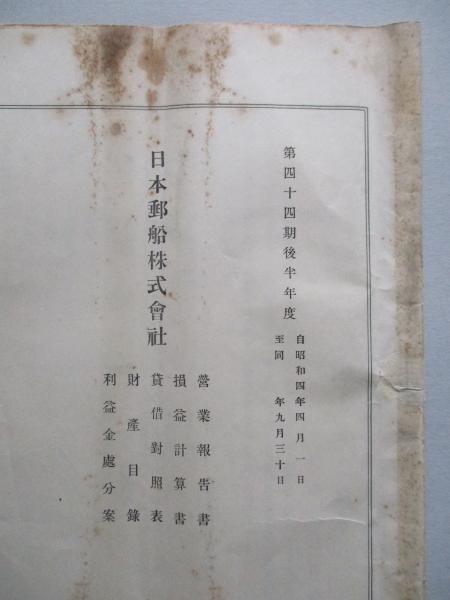 第四十四期後半年度
自昭和四年四月一日
至同　年九月三十日
日本郵船株式會社
營業報告書
損益計算書
貸借對照表
財產目錄
利益金處分案